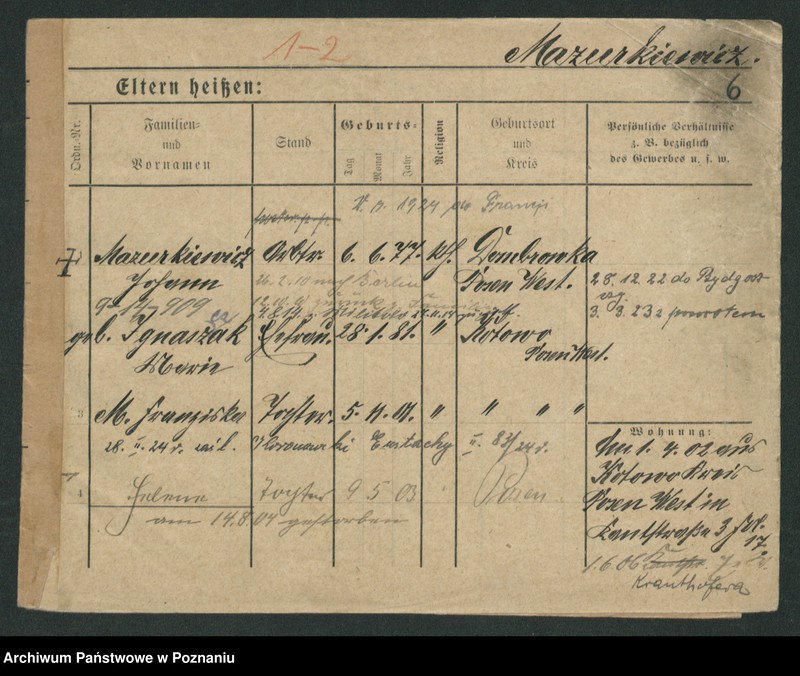 1-2
Mazurkiewicz.
6
Eltern heißen:
Ordn.-Nr.
Familien-
und
Vornamen
Stand
Geburts-
Tag
Monat
Jahr
Religion
Geburtsort
und
Kreis
Persönliche Verhältnisse
z. B. bezüglich
des Gewerbes u. s. w.
1924 do Francji
Mazurkiewicz Arbtr. 6. 6. 77. kth. Dombrowka
Johann
Posen West.
26. 2. 10 nach Berlin
28. 12. 22 do Bydgosz-
czy
9-12-909
12. 10.
3. 3. 23 z powrotem
geb. Ignaszak Ehefrau. 28. 1. 81. " Kotowo
Marie
Posen West.
3 M. Franziska Tochter. 5. 11. 01. " " " "
28. II. 24 r. Eustachy II. 83/24 r.
4 Helene Tochter 9 5 03 Posen
am 14.8.04 gestorben
Wohnung:
Am 1. 4. 02 aus
Kotowo Kreis
Posen West in
Kantstraße 3
17.
1.6.06
Krauthofera